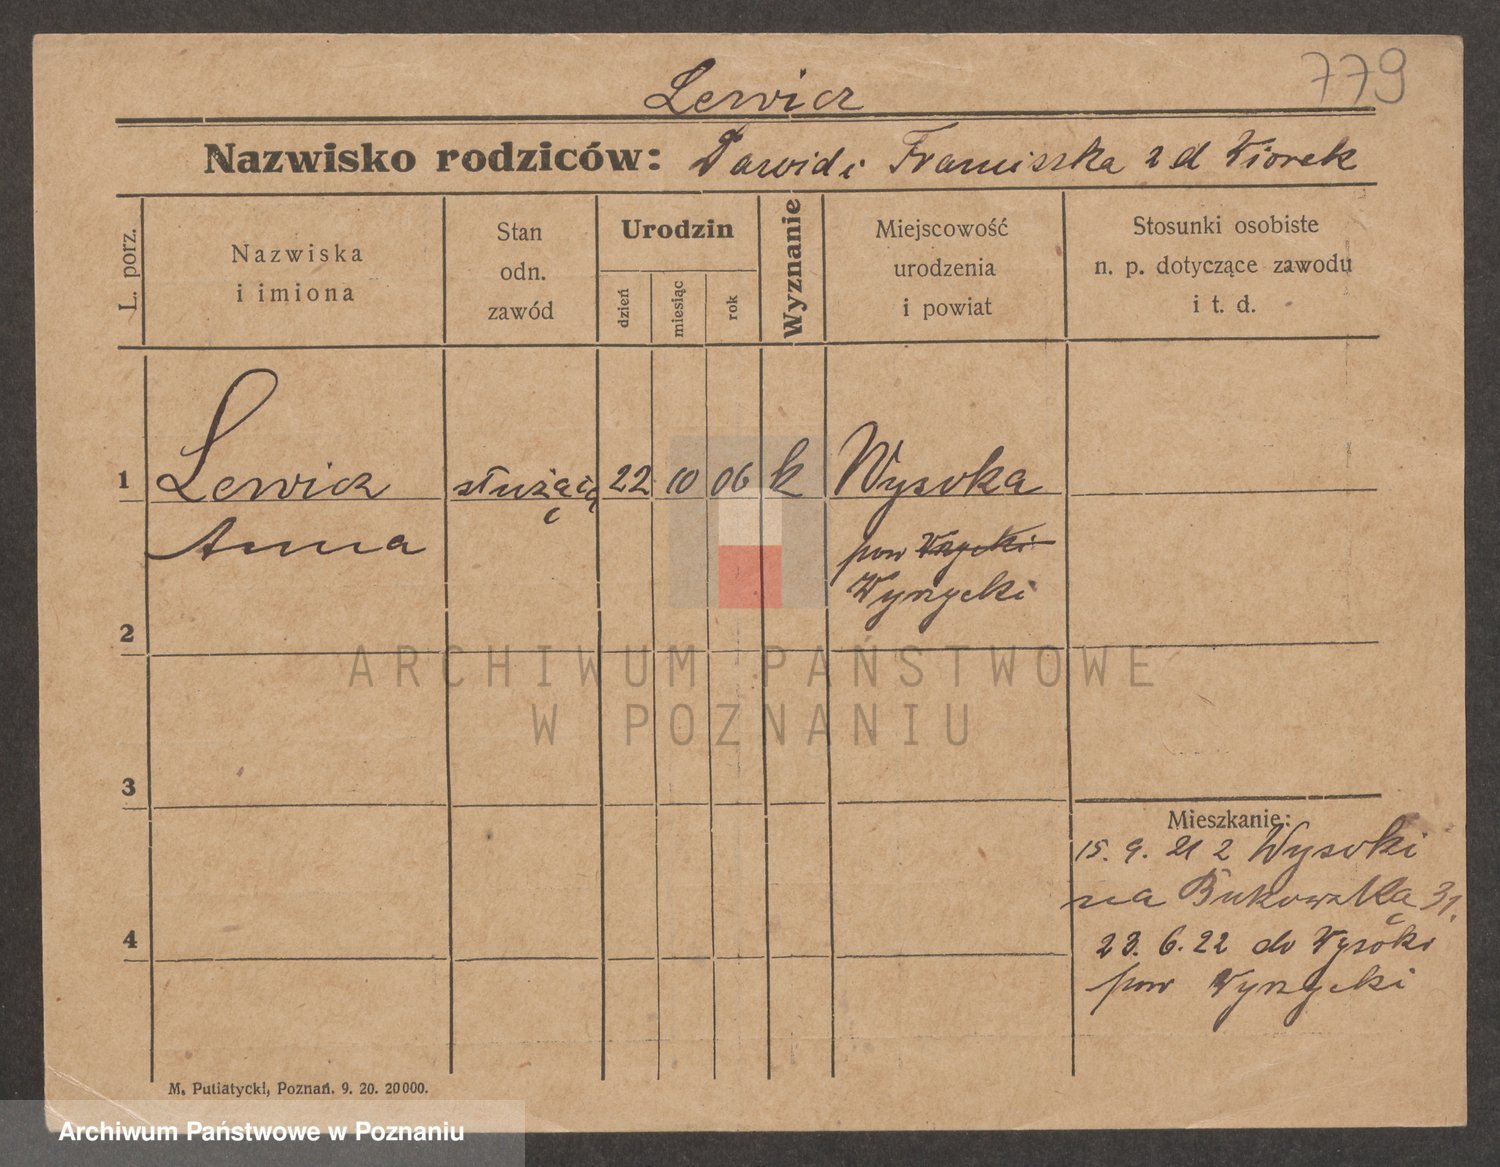 779
Lewicz
Nazwisko rodziców: Dawid i Franciszka z d Wiorek
L. porz.
Nazwiska
i imiona
Stan
odn.
zawód
Urodzin
dzień
miesiąc
rok
Wyznanie
Miejscowość
urodzenia
i powiat
Stosunki osobiste
n. p. dotyczące zawodu
i t. d.
1
Lewicz
służąca
22
10
06
k
Wysoka
Anna
pow
Wyrzycki
2
ARCHIWUM PAŃSTWOWE
W POZNANIU
3
Mieszkanie:
15. 9. 21 z Wysoki
na Bukowską 31.
4
23. 6. 22 do Wysoki
pow Wyrzycki
M. Putiatycki, Poznań. 9. 20. 20000.
Archiwum Państwowe w Poznaniu